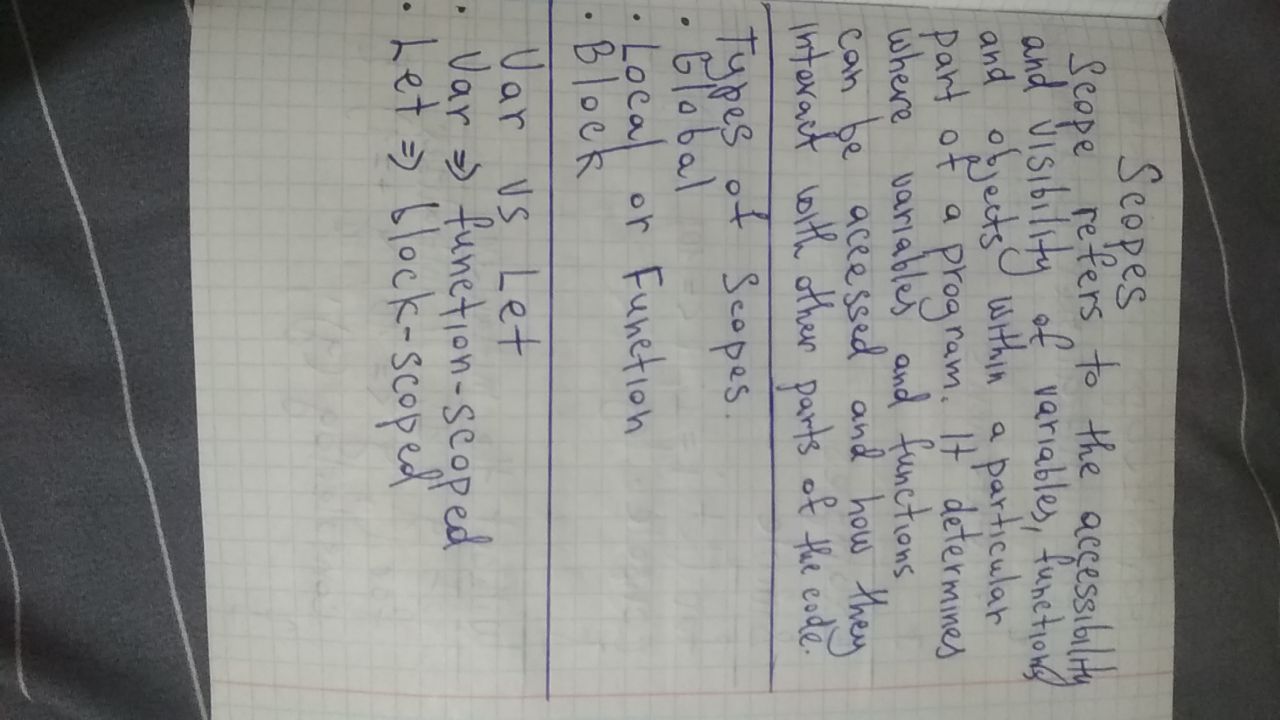 Scopes
Scope refers to the accessibility
and visibility of variables, functions
and objects within a particular
part of a program. It determines
where variables and functions
can be accessed and how they
interact with other parts of the code.
Types of Scopes.
• Global
• Local or Function
• Block
Var vs Let
• Var ⇒ function-scoped
• Let ⇒ block-scoped